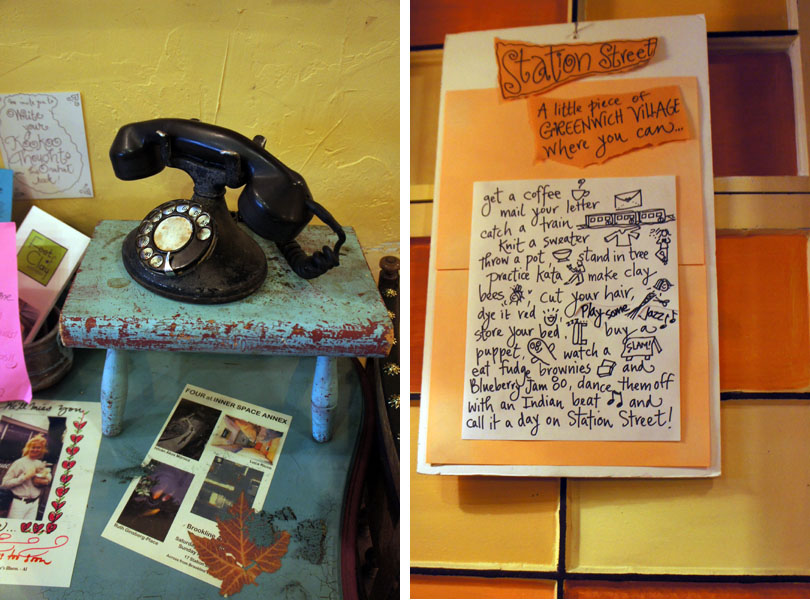 We invite you to
Write
your
Kookoo
Thoughts
Post
Clay
miss you
FOUR at INNER SPACE ANNEX
Ruth Ginsberg-Place
Brookline
Saturday
Sunday
17 Station
Across from Brookline
Station Street
A little piece of
GREENWICH VILLAGE
where you can...
get a coffee
mail your letter
catch a train
Knit a sweater
throw a pot stand in tree
practice kata make clay
bees, cut your hair,
dye it red Play some Jazz
store your bed ZZZ buy a
puppet, watch a SLAM!
eat fudge brownies and
Blueberry Jam 80, dance them off
with an Indian beat and
call it a day on Station Street!